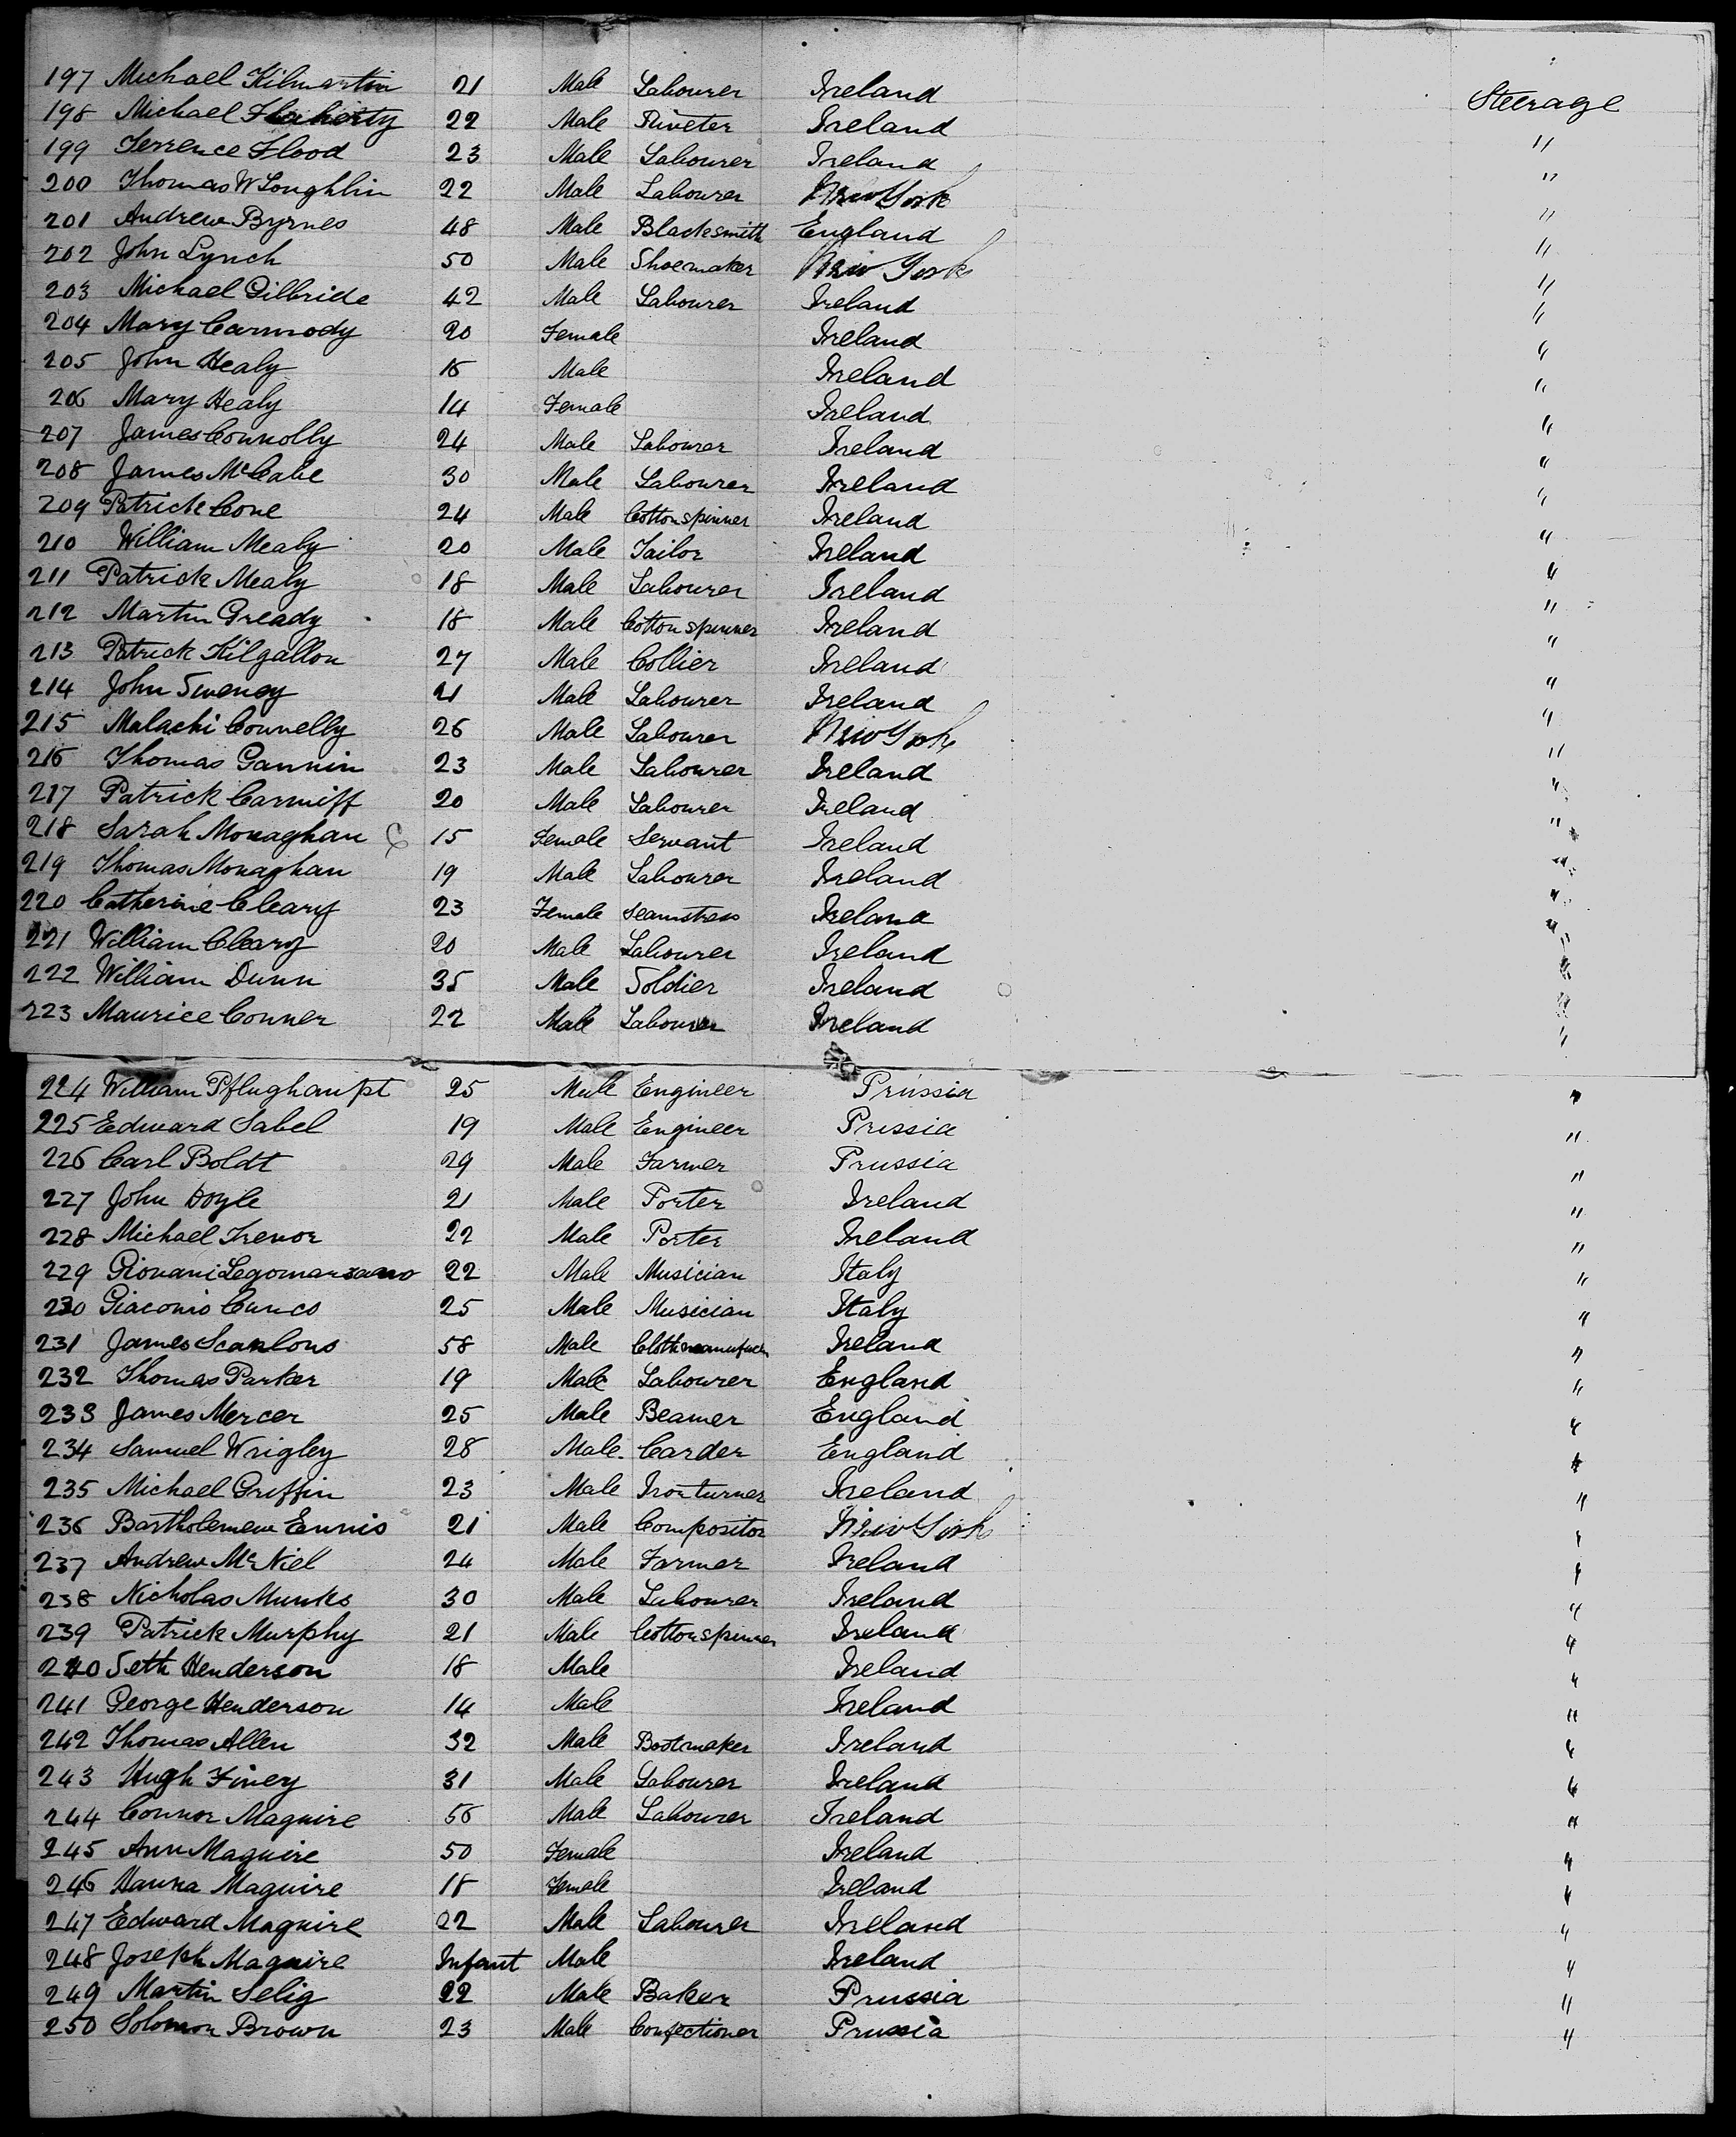 197 Michael Kilmartin 21 Male Labourer Ireland Steerage
198 Michael Flaherty 22 Male Riveter Ireland "
199 Terrence Flood 23 Male Labourer Ireland "
200 Thomas W Loughlin 22 Male Labourer New York "
201 Andrew Byrnes 48 Male Blacksmith England "
202 John Lynch 50 Male Shoemaker New York "
203 Michael Gilbride 42 Male Labourer Ireland "
204 Mary Carmody 20 Female Ireland "
205 John Healy 16 Male Ireland "
206 Mary Healy 14 Female Ireland "
207 James Connolly 24 Male Labourer Ireland "
208 James McCabe 30 Male Labourer Ireland "
209 Patrick Cone 24 Male Cotton spinner Ireland "
210 William Mealy 20 Male Tailor Ireland "
211 Patrick Mealy 18 Male Labourer Ireland "
212 Martin Gready 18 Male Cotton spinner Ireland "
213 Patrick Kilgallon 27 Male Collier Ireland "
214 John Sweney 21 Male Labourer Ireland "
215 Malachi Connelly 26 Male Labourer New York "
216 Thomas Gannin 23 Male Labourer Ireland "
217 Patrick Carniff 20 Male Labourer Ireland "
218 Sarah Monaghan 15 Female Servant Ireland "
219 Thomas Monaghan 19 Male Labourer Ireland "
220 Catherine Cleary 23 Female Seamstress Ireland "
221 William Cleary 20 Male Labourer Ireland "
222 William Dunn 35 Male Soldier Ireland "
223 Maurice Conner 22 Male Labourer Ireland "
224 William Pflughaupt 25 Male Engineer Prussia "
225 Edward Sabel 19 Male Engineer Prussia "
226 Carl Boldt 29 Male Farmer Prussia "
227 John Doyle 21 Male Porter Ireland "
228 Michael Trenor 22 Male Porter Ireland "
229 Giovani Legomarsano 22 Male Musician Italy "
230 Giacomo Cunco 25 Male Musician Italy "
231 James Scanlons 58 Male Ireland "
232 Thomas Parker 19 Male Labourer England "
233 James Mercer 25 Male Beamer England "
234 Samuel Wrigley 28 Male Carder England "
235 Michael Griffin 23 Male Iron turner Ireland "
236 Bartholemew Ennis 21 Male Compositor New York "
237 Andrew McNiel 24 Male Farmer Ireland "
238 Nicholas Munks 30 Male Labourer Ireland "
239 Patrick Murphy 21 Male Cotton spinner Ireland "
240 Seth Henderson 18 Male Ireland "
241 George Henderson 14 Male Ireland "
242 Thomas Allen 32 Male Bootmaker Ireland "
243 Hugh Finey 31 Male Labourer Ireland "
244 Connor Maguire 56 Male Labourer Ireland "
245 Ann Maguire 50 Female Ireland "
246 Hanna Maguire 18 Female Ireland "
247 Edward Maguire 22 Male Labourer Ireland "
248 Joseph Maguire Infant Male Ireland "
249 Martin Selig 22 Male Baker Prussia "
250 Solomon Brown 23 Male Confectioner Prussia "